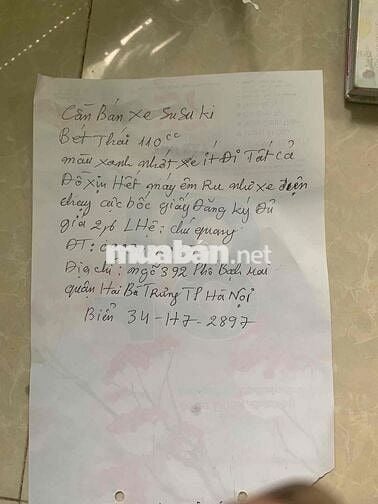 Cần Bán xe SuSuki
Bét Thái 110cc
màu xanh nhớt xe ít Đi Tất cả
Đồ xin Hết máy êm Ru như xe điện
chạy cực bốc giấy Đăng ký Đủ
giá 2,6 LHệ: chú quang
ĐT: 0
muaban.net
Địa chỉ: ngõ 392 Phố Bạch Mai
quận Hai Bà Trưng TP Hà Nội
Biển 34-H7-2897